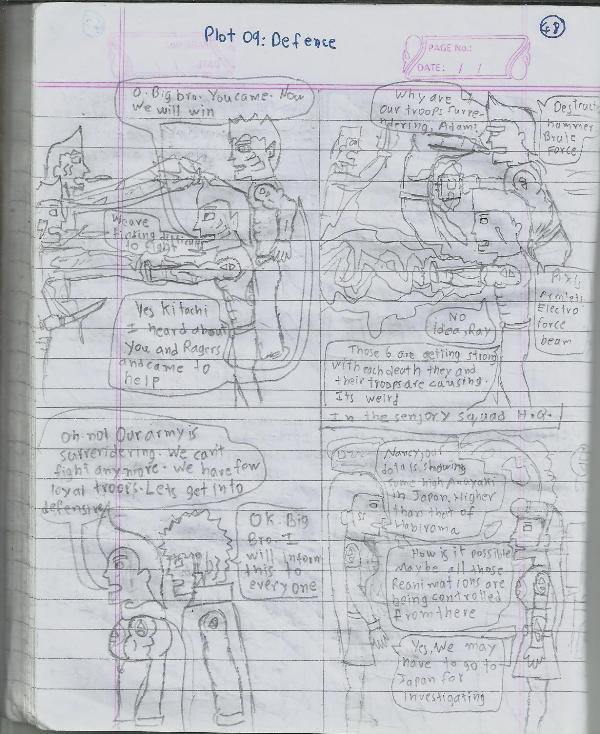 48
Plot 09: Defence
PAGE No.:
DATE: / /
O. Big bro. You came. Now
we will win
We are
to fight
Yes Kitachi
I heard about
You and Ragers
and came to
help
Why are
our troops surre-
ndering, Adam?
Destruct
hammer
Brute
Force
No
idea, Ray
Electro
force
beam
Those 6 are getting strong
with each death they and
their troops are causing.
Its weird
In the sensory squad H.Q.
Oh no! Our army is
surrendering. We can't
fight anymore. We have few
loyal troops. Lets get into
defensive
OK. Big
Bro. I
will inform
this to
everyone
Nancy, our
data is showing
some high
in Japan. Higher
than that of
How is it possible
Maybe all those
Reanimations are
being controlled
from there
Yes, We may
have to go to
Japan for
investigating